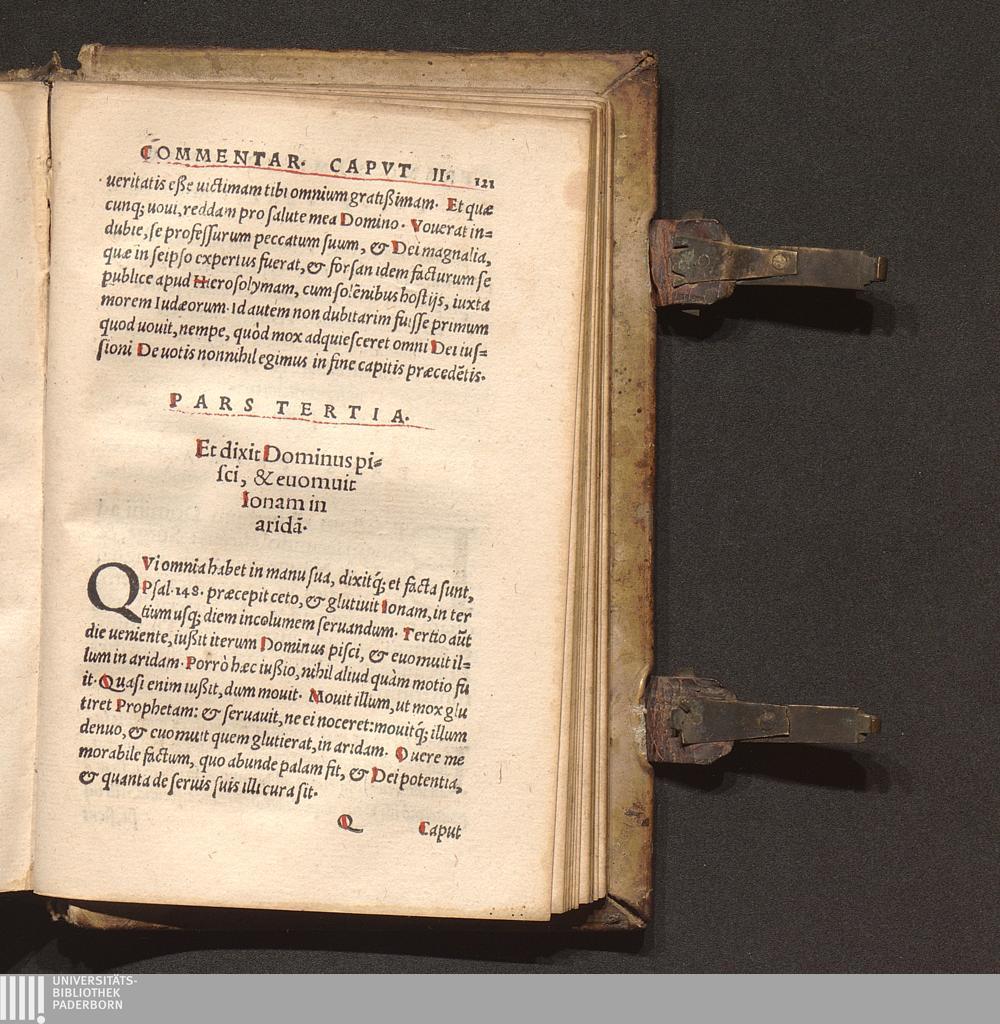 COMMENTAR. CAPVT II. 121
ueritatis eſſe uictimam tibi omnium gratiſsimam. Et quæ
cunq; uoui, reddam pro ſalute mea Domino. Vouerat in=
dubie, ſe profeſſurum peccatum ſuum, & Dei magnalia,
quæ in ſeipſo expertus fuerat, & forſan idem facturum ſe
publice apud Hieroſolymam, cum ſolēnibus hoſtijs, iuxta
morem Iudæorum. Id autem non dubitarim fuiſſe primum
quod uouit, nempe, quòd mox adquieſceret omni Dei iuſ=
ſioni De uotis nonnihil egimus in fine capitis præcedētis.
PARS TERTIA.
Et dixit Dominus pi=
ſci, & euomuit
Ionam in
aridā.
QVi omnia habet in manu ſua, dixitq́; et facta ſunt,
Pſal. 148. præcepit ceto, & glutiuit Ionam, in ter
tium uſq; diem incolumem ſeruandum. Tertio aūt
die ueniente, iuſsit iterum Dominus piſci, & euomuit il=
lum in aridam. Porrò hæc iuſsio, nihil aliud quàm motio fu
it. Quaſi enim iuſsit, dum mouit. Mouit illum, ut mox glu
tiret Prophetam: & ſeruauit, ne ei noceret: mouitq́; illum
denuo, & euomuit quem glutierat, in aridam. Vere me
morabile factum, quo abunde palam fit, & Dei potentia,
& quanta de ſeruis ſuis illi cura ſit.
Q Caput
UNIVERSITÄTS-
BIBLIOTHEK
PADERBORN